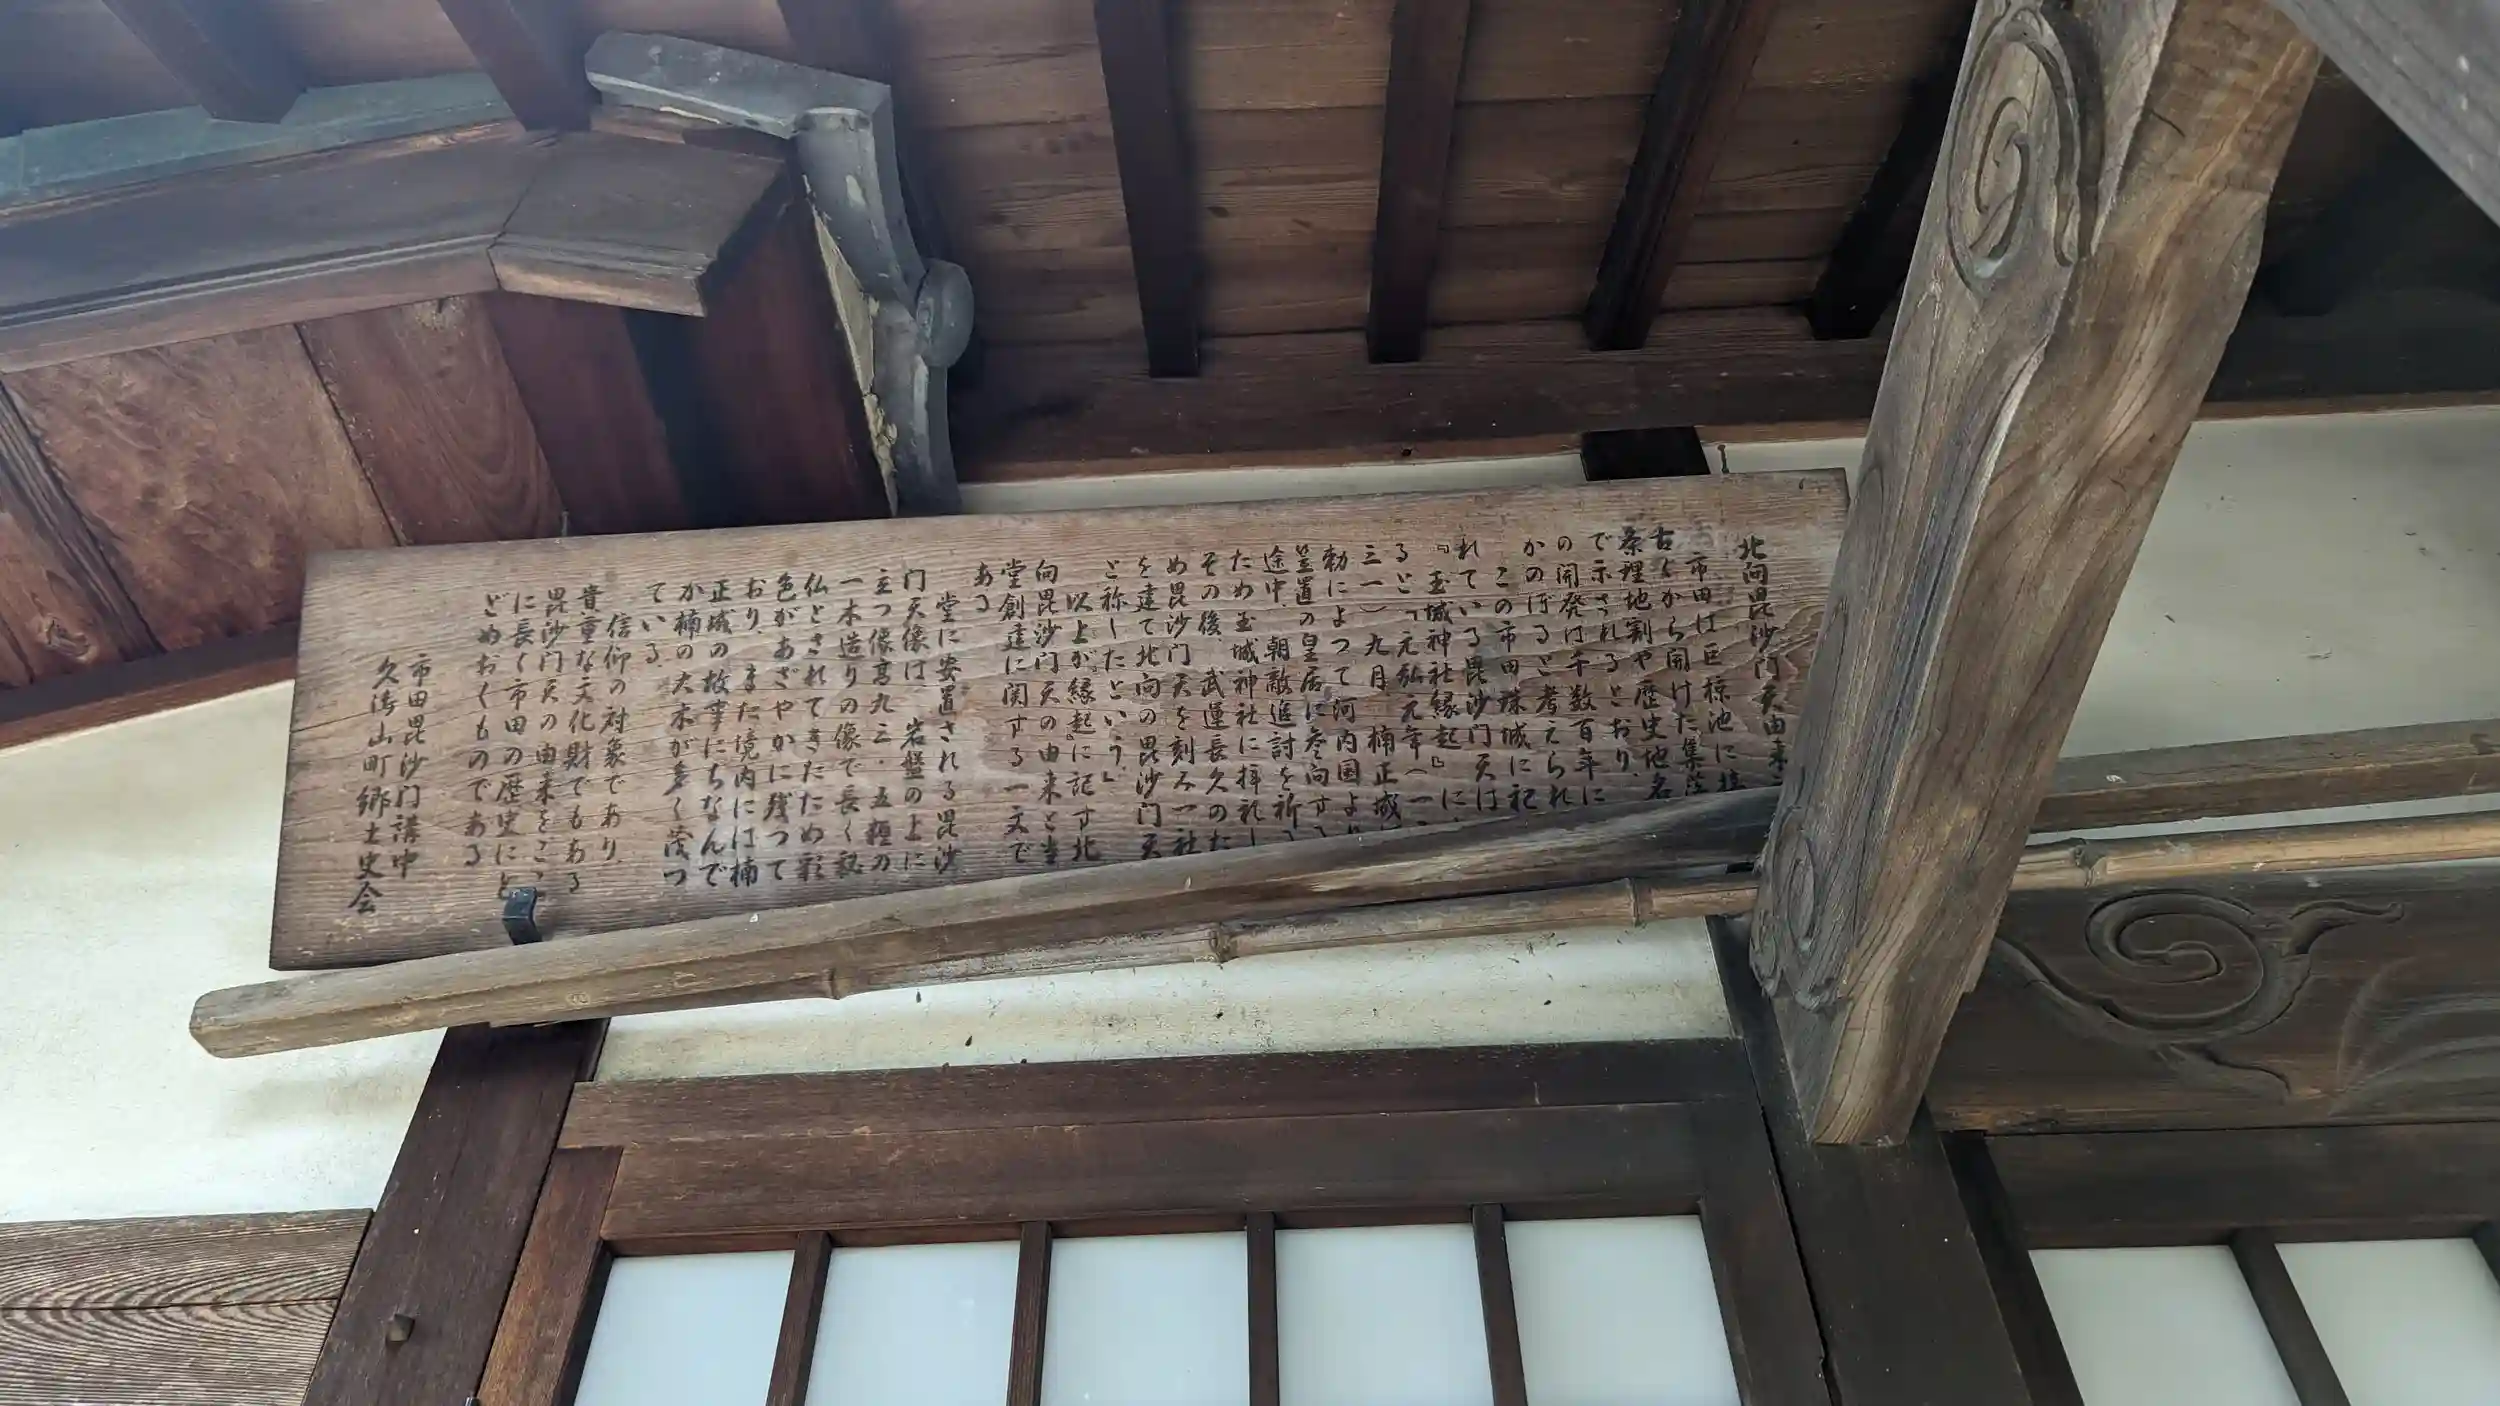 北向毘沙門天由来
市田は巨椋池に
古くから開けた集
条理地割や歴史地名
で示されるとおり、
の開発は千数百年に
かのぼると考えられ
この市田珠城に祀
れている毘沙門天は
『玉城神社縁起』に
ると「元弘元年(一
三一)九月、楠正成
勅によって河内国より
笠置の皇居に参向する
途中、朝敵追討を祈る
ため玉城神社に拝礼し
その後、武運長久のた
め毘沙門天を刻み一社
を建て北向の毘沙門天
と称したという。」
以上が『縁起』に記す北
向毘沙門天の由来と当
堂創建に関する一文で
ある
堂に安置される毘沙
門天像は、岩盤の上に
立つ像高九三・五糎の
一木造りの像で長く秘
仏とされてきたため彩
色があざやかに残って
おり、また境内には楠
正成の故事にちなんで
か楠の大木が多く茂っ
ている。
信仰の対象であり、
貴重な文化財でもある
毘沙門天の由来をこゝ
に長く市田の歴史にと
どめおくものである
市田毘沙門講中
久御山町郷土史会